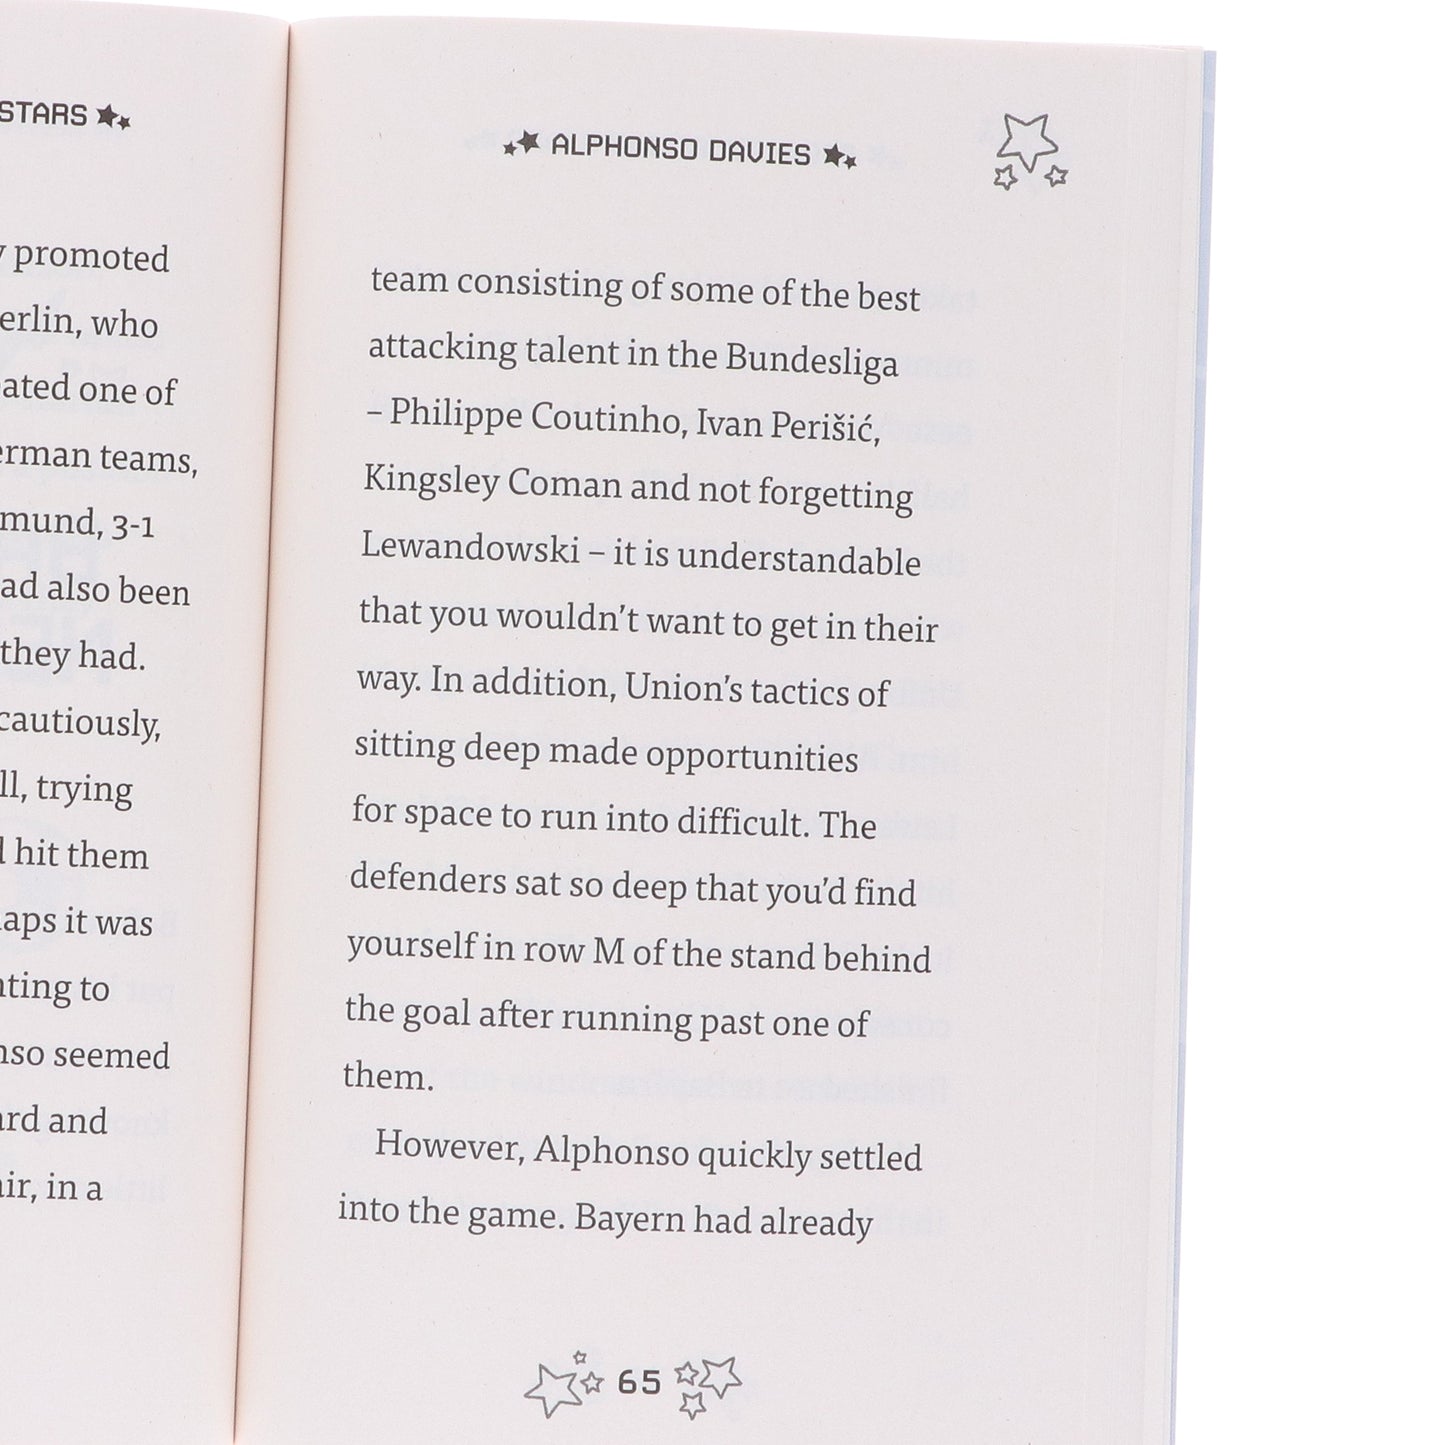 STARS
promoted
erlin, who
ated one of
erman teams,
mund, 3-1
ad also been
they had.
cautiously,
ll, trying
hit them
aps it was
nting to
nso seemed
ard and
air, in a
ALPHONSO DAVIES
team consisting of some of the best
attacking talent in the Bundesliga
– Philippe Coutinho, Ivan Perišić,
Kingsley Coman and not forgetting
Lewandowski – it is understandable
that you wouldn’t want to get in their
way. In addition, Union’s tactics of
sitting deep made opportunities
for space to run into difficult. The
defenders sat so deep that you’d find
yourself in row M of the stand behind
the goal after running past one of
them.
However, Alphonso quickly settled
into the game. Bayern had already
65